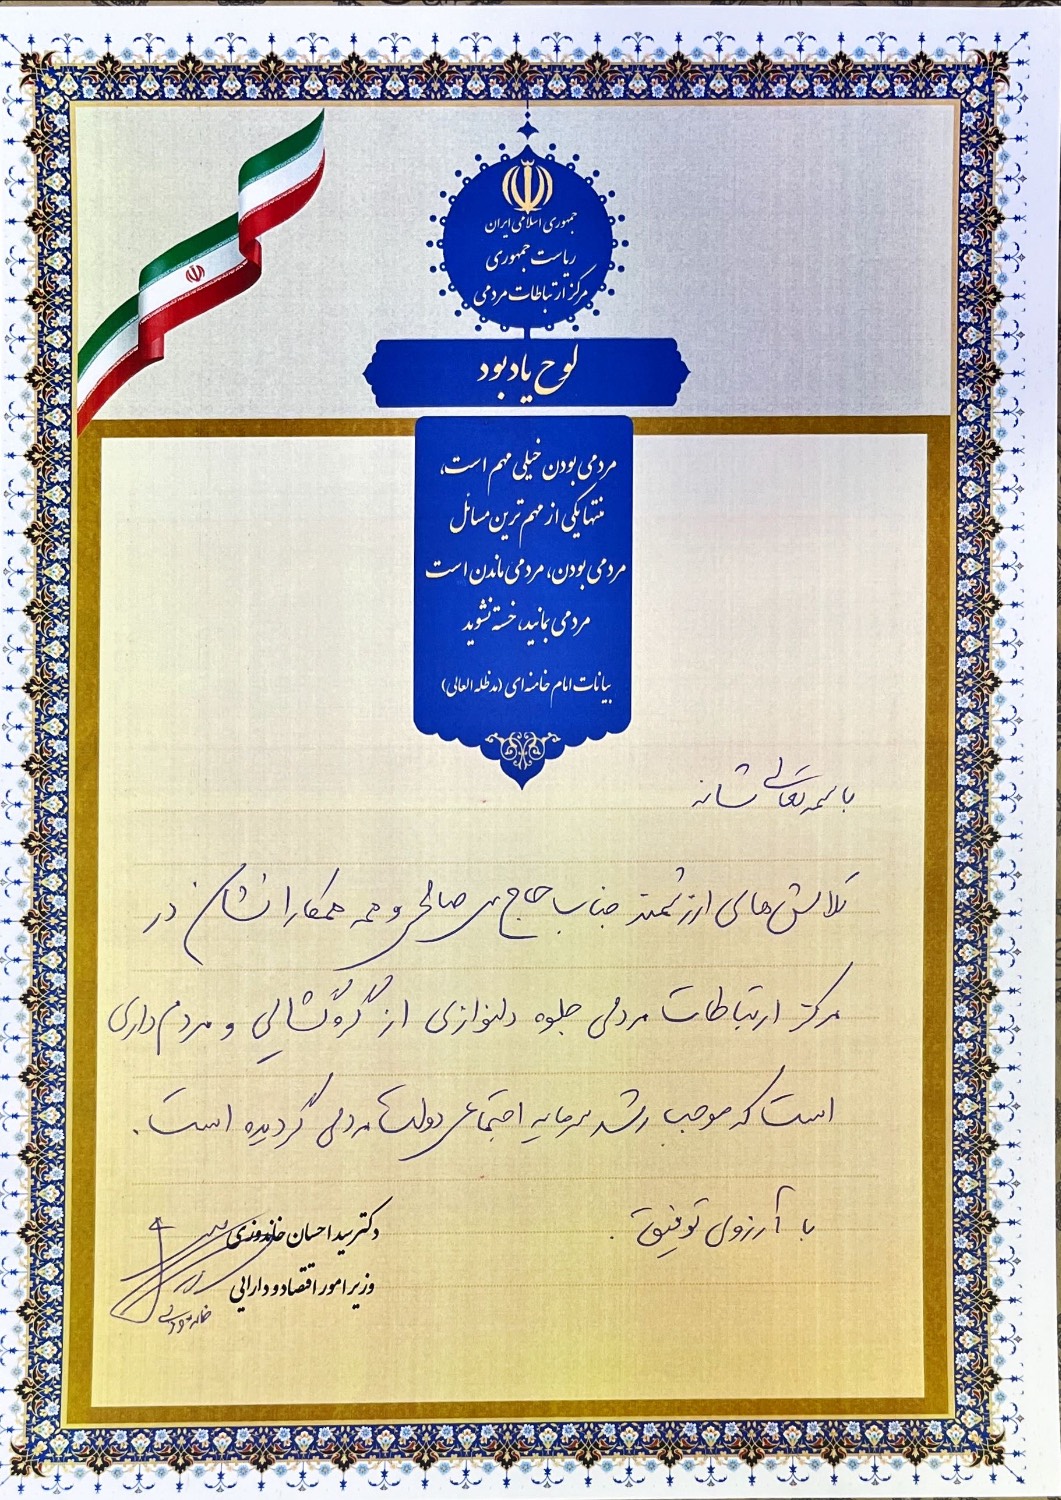 جمهوری اسلامی ایران
ریاست جمهوری
مرکز ارتباطات مردمی
لوح یادبود
مردمی بودن خیلی مهم است،
منتها یکی از مهم ترین مسائل
مردمی بودن، مردمی ماندن است
مردمی بمانید، خسته نشوید
بیانات امام خامنه ای (مدظله العالی)
باسمه تعالی شانه
تلاش‌های ارزشمند جناب حاج آقای صالحی و همه همکارانشان در
مرکز ارتباطات مردمی جلوه دلنوازی از گره‌گشائی و مردم داری
است که موجب رشد سرمایه اجتماعی دولت مردمی گردیده است.
با آرزوی توفیق.
دکتر سید احسان خاندوزی
وزیر امور اقتصاد و دارایی
خاندوزی